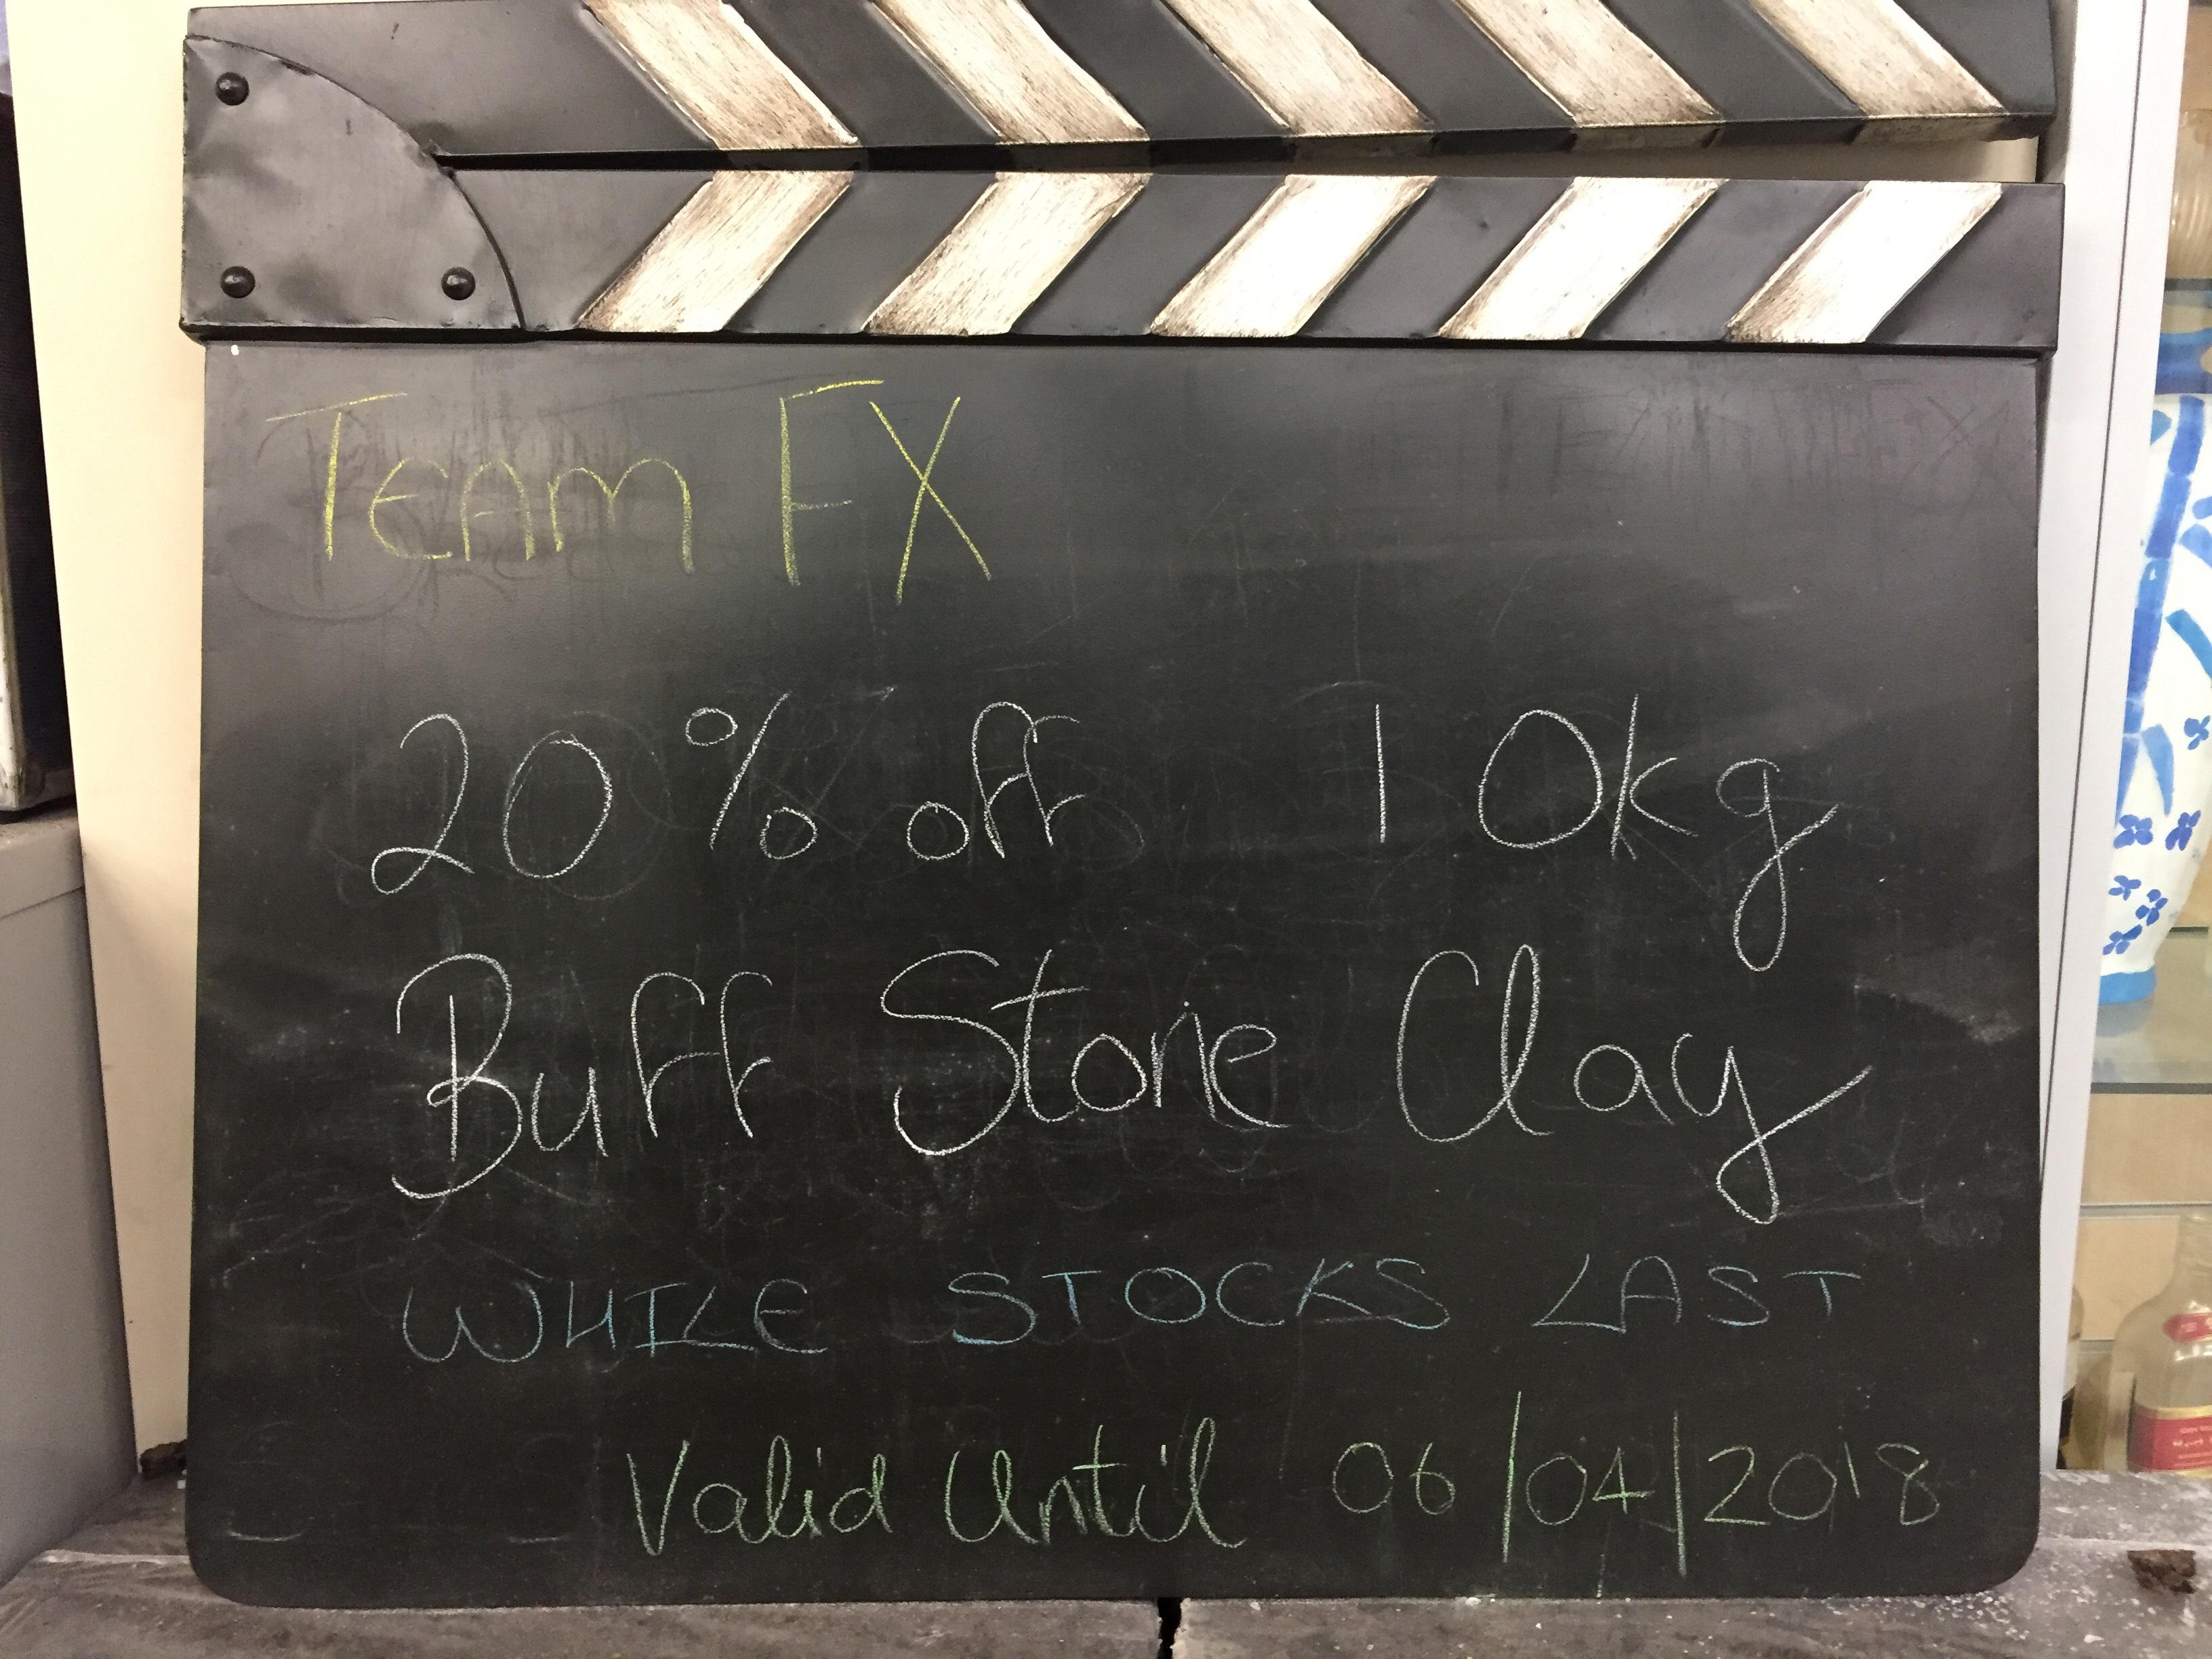 Team FX
20% off 10kg
Buff Stone Clay
WHILE STOCKS LAST
Valid Until 06/04/2018